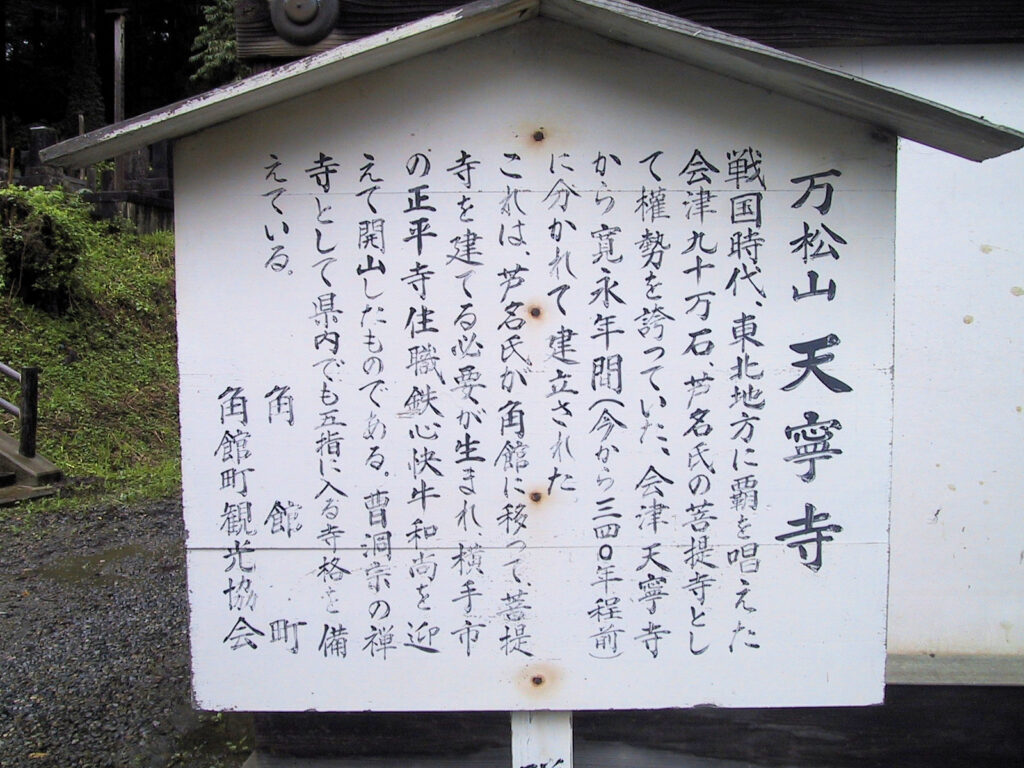 万松山 天寧寺
戦国時代、東北地方に覇を唱えた
会津九十万石芦名氏の菩提寺とし
て權勢を誇っていた、会津天寧寺
から寛永年間(今から三四〇年程前)
に分かれて建立された
これは、芦名氏が角館に移って、菩提
寺を建てる必要が生まれ、横手市
の正平寺住職鉄心快牛和尚を迎
えて開山したものである。曹洞宗の禅
寺として県内でも五指に入る寺格を備
えている。
角館町
角館町観光協会